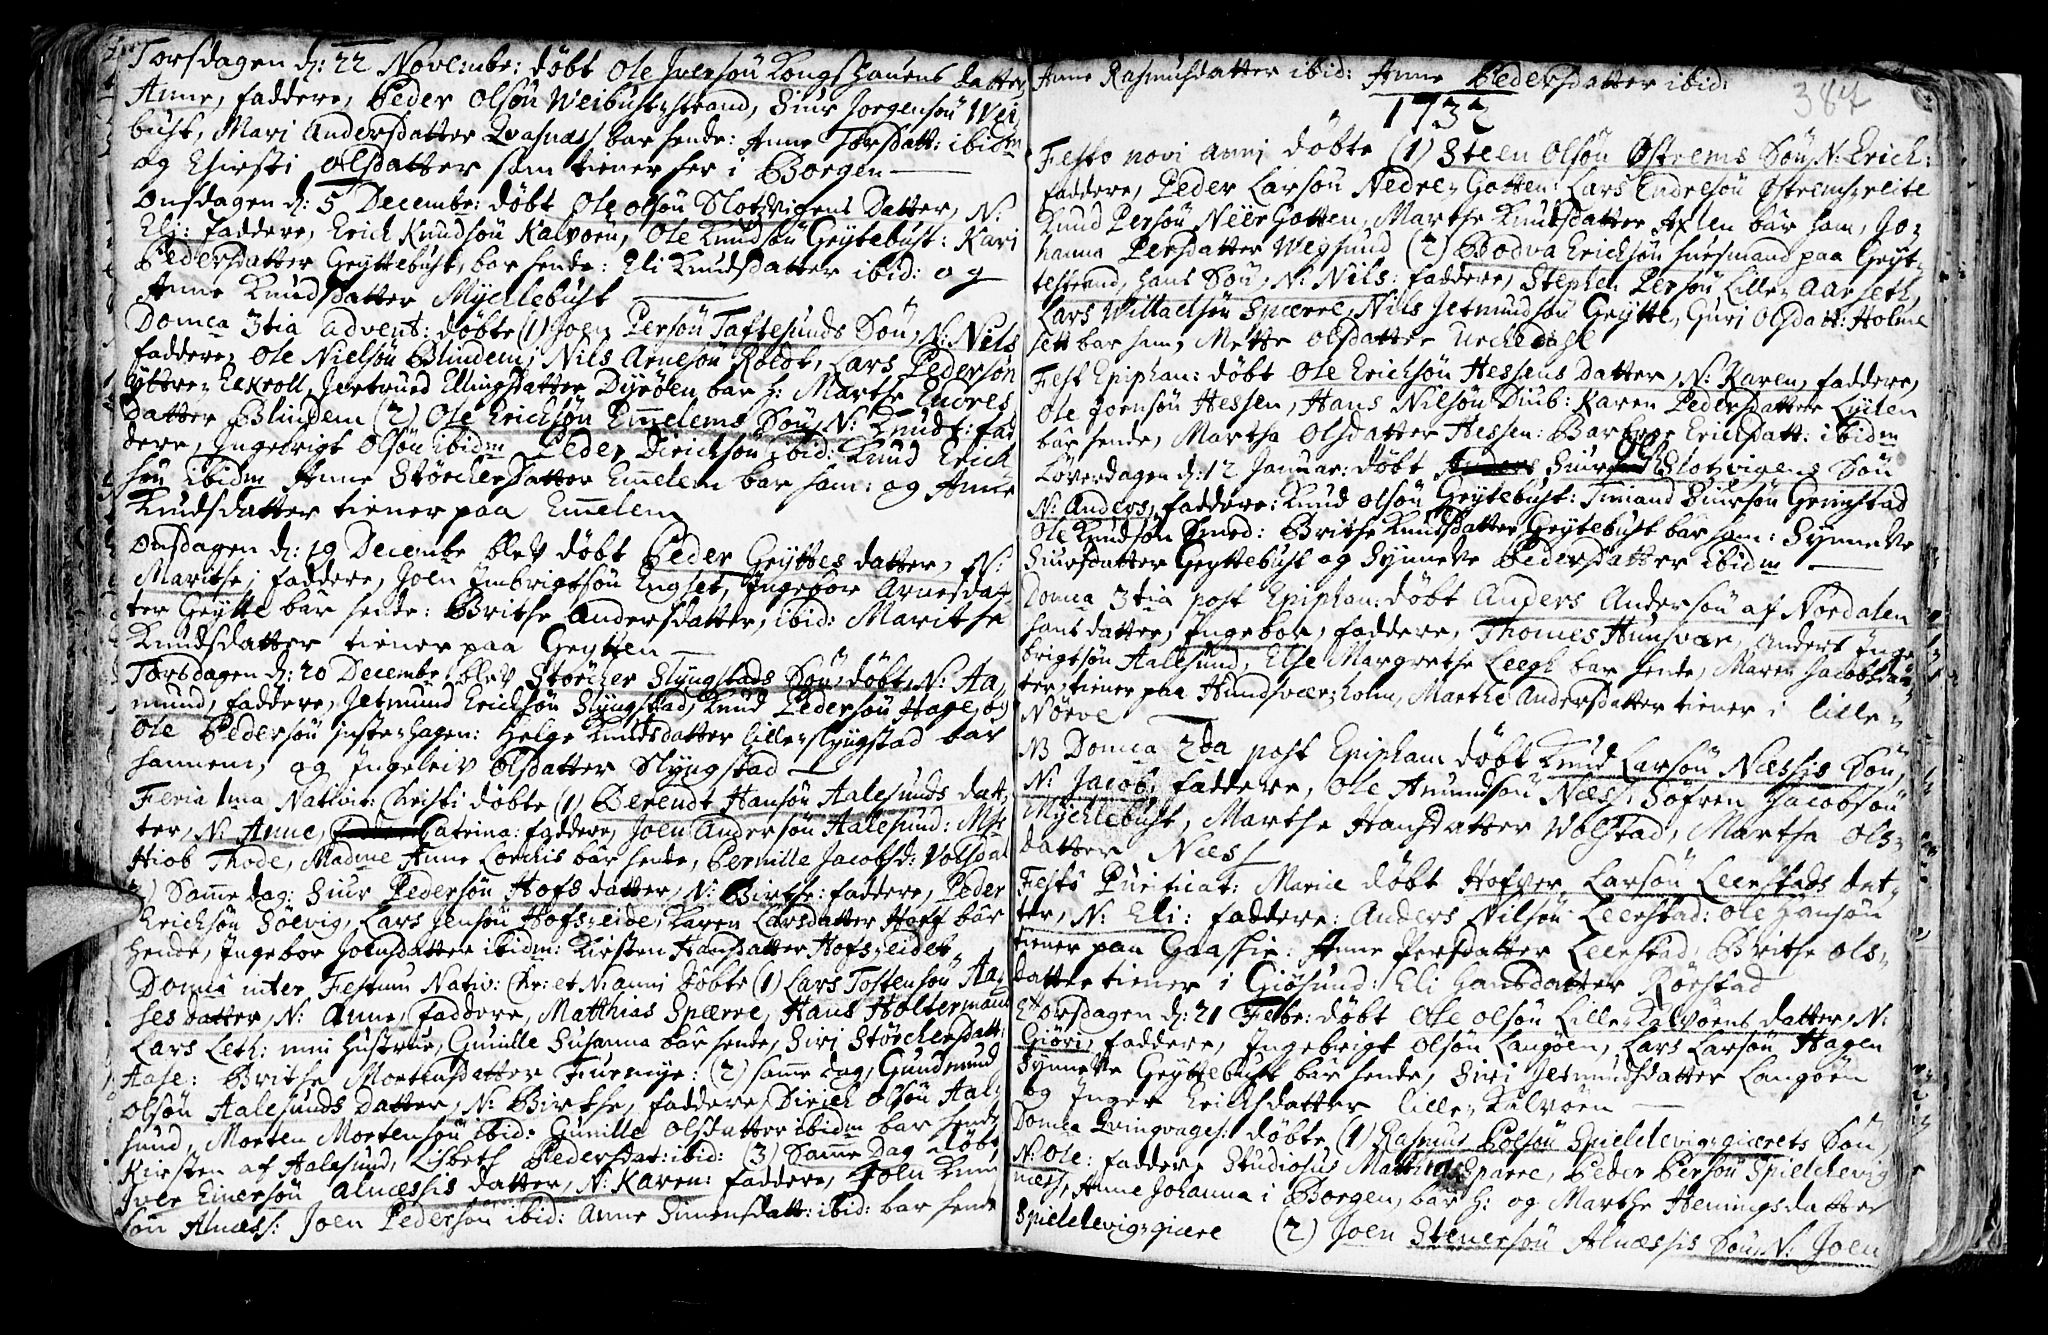 Torsdagen d: 22 Novembr: döbt Ole Iversöñ Kongshaugens datter
Anne, faddere, Peder Olsöñ Weibust=strand, Siur Jorgensöñ Wei
bust, Mari Andersdatter Qvasnæs bar hende: Anne Torsdatt: ibidm
og Khirsti olsdatter som tiener her i Borgen
Onsdagen d: 5 Decembr: döbt Ole olsöñ Slotzvigens Datter, N:
Eli: faddere, Erich Knudsöñ Kalvoen, Ole Knudsöñ Geÿtebust: Kari
Pedersdatter Geÿttebust, bar hende: Eli Knudsdatter ibid: og
Anne Knudsdatter Mÿchlebust
Domca 3tia advent: döbte (1) Joen Persöñ Taftesunds Söñ, N: Nils
faddere, Ole Nielsöñ Blindem, Nils Arnesöñ Roldt, Lars Pedersöñ
ÿttre=Eekroll, Jertrund Ellingsdatter Dÿröen bar h: Marthe Endres
datter Blindem (2) Ole Erichsöñ Em̄elems Söñ, N: Knudt: fad
dere, Ingebrigt Olsöñ ibidm Peder Dirichsöñ ibid: Knud Erich
söñ ibidm Anne Störchersdatter Em̄elem bar ham: og Anne
Knudsdatter tiener paa Em̄elem
Onsdagen d: 19 Decembr blev döbt Peder Geÿttes datter, N:
Marithe, faddere, Joen Imbrigtsöñ Engset, Ingebor Arnesdat
ter Geÿtte bar hende: Brithe Andersdatter, ibid: Marithe
Knudsdatter tiener paa Geÿtten
Torsdagen d: 20 Decembr blev Störcher Slÿngstads Söñ döbt, N: Aa
mund, faddere, Jetmund Erichsöñ Slÿngstad, Knud Pedersöñ Hage, og
Ole Pedersöñ juste=hagen: Helge Knudsdatter lille=slÿngstad bar
hannem, og Ingeleiv Olsdatter Slÿngstad
Feria 1ma Nativit: Christi döbte (1) Berendt Hansöñ Aalesunds dat
ter, N: Anne, Catrina: faddere, Joen Andersöñ Aalesund: Msr
Hiob Thode, Madme Anne Lorchis bar hende, Pernille Jacobsd: Volsdal
2) Sam̄e dag: Siur Pedersöñ Hofs datter, N: Birthe: faddere, Peder
Erichsöñ Soevig, Lars Jensöñ Hofs=eide, Karen Larsdatter Hoff bar
hende, Ingebor Joensdatter ibidm: Kirsten Hansdatter Hofs=eidet
Domca inter Festum Nativ: Chr: et N: anni döbte (1) Lars Tostensöñ Aa
ses datter, N: Anne, faddere, Matthias Spærre, Hans Holtermann
Lars Leth: min hustrue, Gunille Susanna bar hende, Siri Störchersdatt:
Aase: Brithe Mortensdatter Furmÿe: (2) sam̄e dag, Gundmund
olsöñ Aalesunds datter, N: Birthe, faddere, Dirich Olsöñ Aal
sund, Morten Mortensöñ ibid: Gunille Olsdatter ibidm bar hende
Kirsten af Aalesund, Lisbeth Pedersdat: ibid: (3) Sam̄e Dag döbt
Iver Einersöñ Alnæssis datter, N: Karen: faddere, Joen Knud
söñ Alnæss: Joen Pedersöñ ibid: Anne Simensdatt: ibid: bar hende
Anne Rasmusdatter ibid: Anne Pedersdatter ibid:
387
1732
Festo novi anni döbte (1) Steen Olsöñ Östrems Söñ N: Erich:
faddere, Peder Larsöñ Nedre=Gotten: Lars Endresöñ Östrems=reite
Knud Persöñ Neer Gotten, Marthe Knudsdatter Axlen bar ham, Jo=
hanna Persdatter Wegsund (2) Bodva Erichsöñ huusmand paa Geÿt
testrand, hans Söñ, N: Nils: faddere, Stephen Persöñ Lille=Aarseth
Lars Willaelsöñ Spærre, Nils Jetmundsöñ Geÿtte, Guri Olsdatt: Holme
sett bar ham, Mette Olsdatter Urchedahl
Fest Epiphan: döbt Ole Erichsöñ Hessens datter, N: Karen, faddere,
Ole Joensöñ Hessen, Hans Nilsöñ Diub: Karen Pedersdatter Lÿelen
bar hende, Martha Olsdatter Hessen: Barbroe Erichsdatt: ibidm
Löverdagen d: 12 Januar: döbt Siur Slotzvigens Söñ
N: Anders, faddere: Knud Olsöñ Geÿtebust: Timand Siursöñ Grimstad
Ole Knudsöñ Smed: Brithe Knudsdatter Geÿtebust bar ham: Sÿnneve
Siursdatter Geÿttebust og Sÿnneve Pedersdatter ibidm
Domca 3tia post Epiphan: döbt Anders Andersöñ af Nordalen
hans datter, Ingebor, faddere, Thomes Hunsvær, Anders Inge
brigtsöñ Aalesund, Else Margrethe Leegh bar hende, Maren Jacobsdat
ter tiener paa Hundsvær=holm, Marthe Andersdatter tiener i lille=
Nörve
NB Domca 2da post Epiphan döbt Knud Larsöñ Næssis Söñ,
N: Jacob, faddere, Ole Amundsöñ Næss: Söfren Jacobsöñ
Mÿchlebust, Marthe Hansdatter Volstad, Martha Ols=
datter Næss
Festo Purificat: Mariæ döbt Hofver Larsöñ Leerstads dat=
ter, N: Eli: faddere: Anders Nilsöñ Leerstad: Ole Hansöñ
tiener paa Gaashie: Anne Persdatter Leerstad, Brithe Ols=
datter tiener i Giösund: Eli Hansdatter Rörstad
Torsdagen d: 21 Febr: döbt Ole Olsöñ Lille=Kalvöens datter, N:
Giöri, faddere, Ingebrigt Olsöñ Langöen, Lars Larsöñ Hagen
Sÿnneve Geÿttebust bar hende, Siri Jetmundsdatter Langöen
og Inger Erichsdatter lille=Kalvöen
Domca Qvinqvages: döbte (1) Rasmus Polsöñ Spieldevig=giærets Söñ,
N: Ole: faddere Studiosus Matthias Sparre, Peder Persöñ Spieldevig
næs, Anne Johanna i Borgen, bar h: og Marthe Heningsdatter
Spieldevig=giære (2) Joen Stenersöñ Alnæssis Söñ, N: Joen